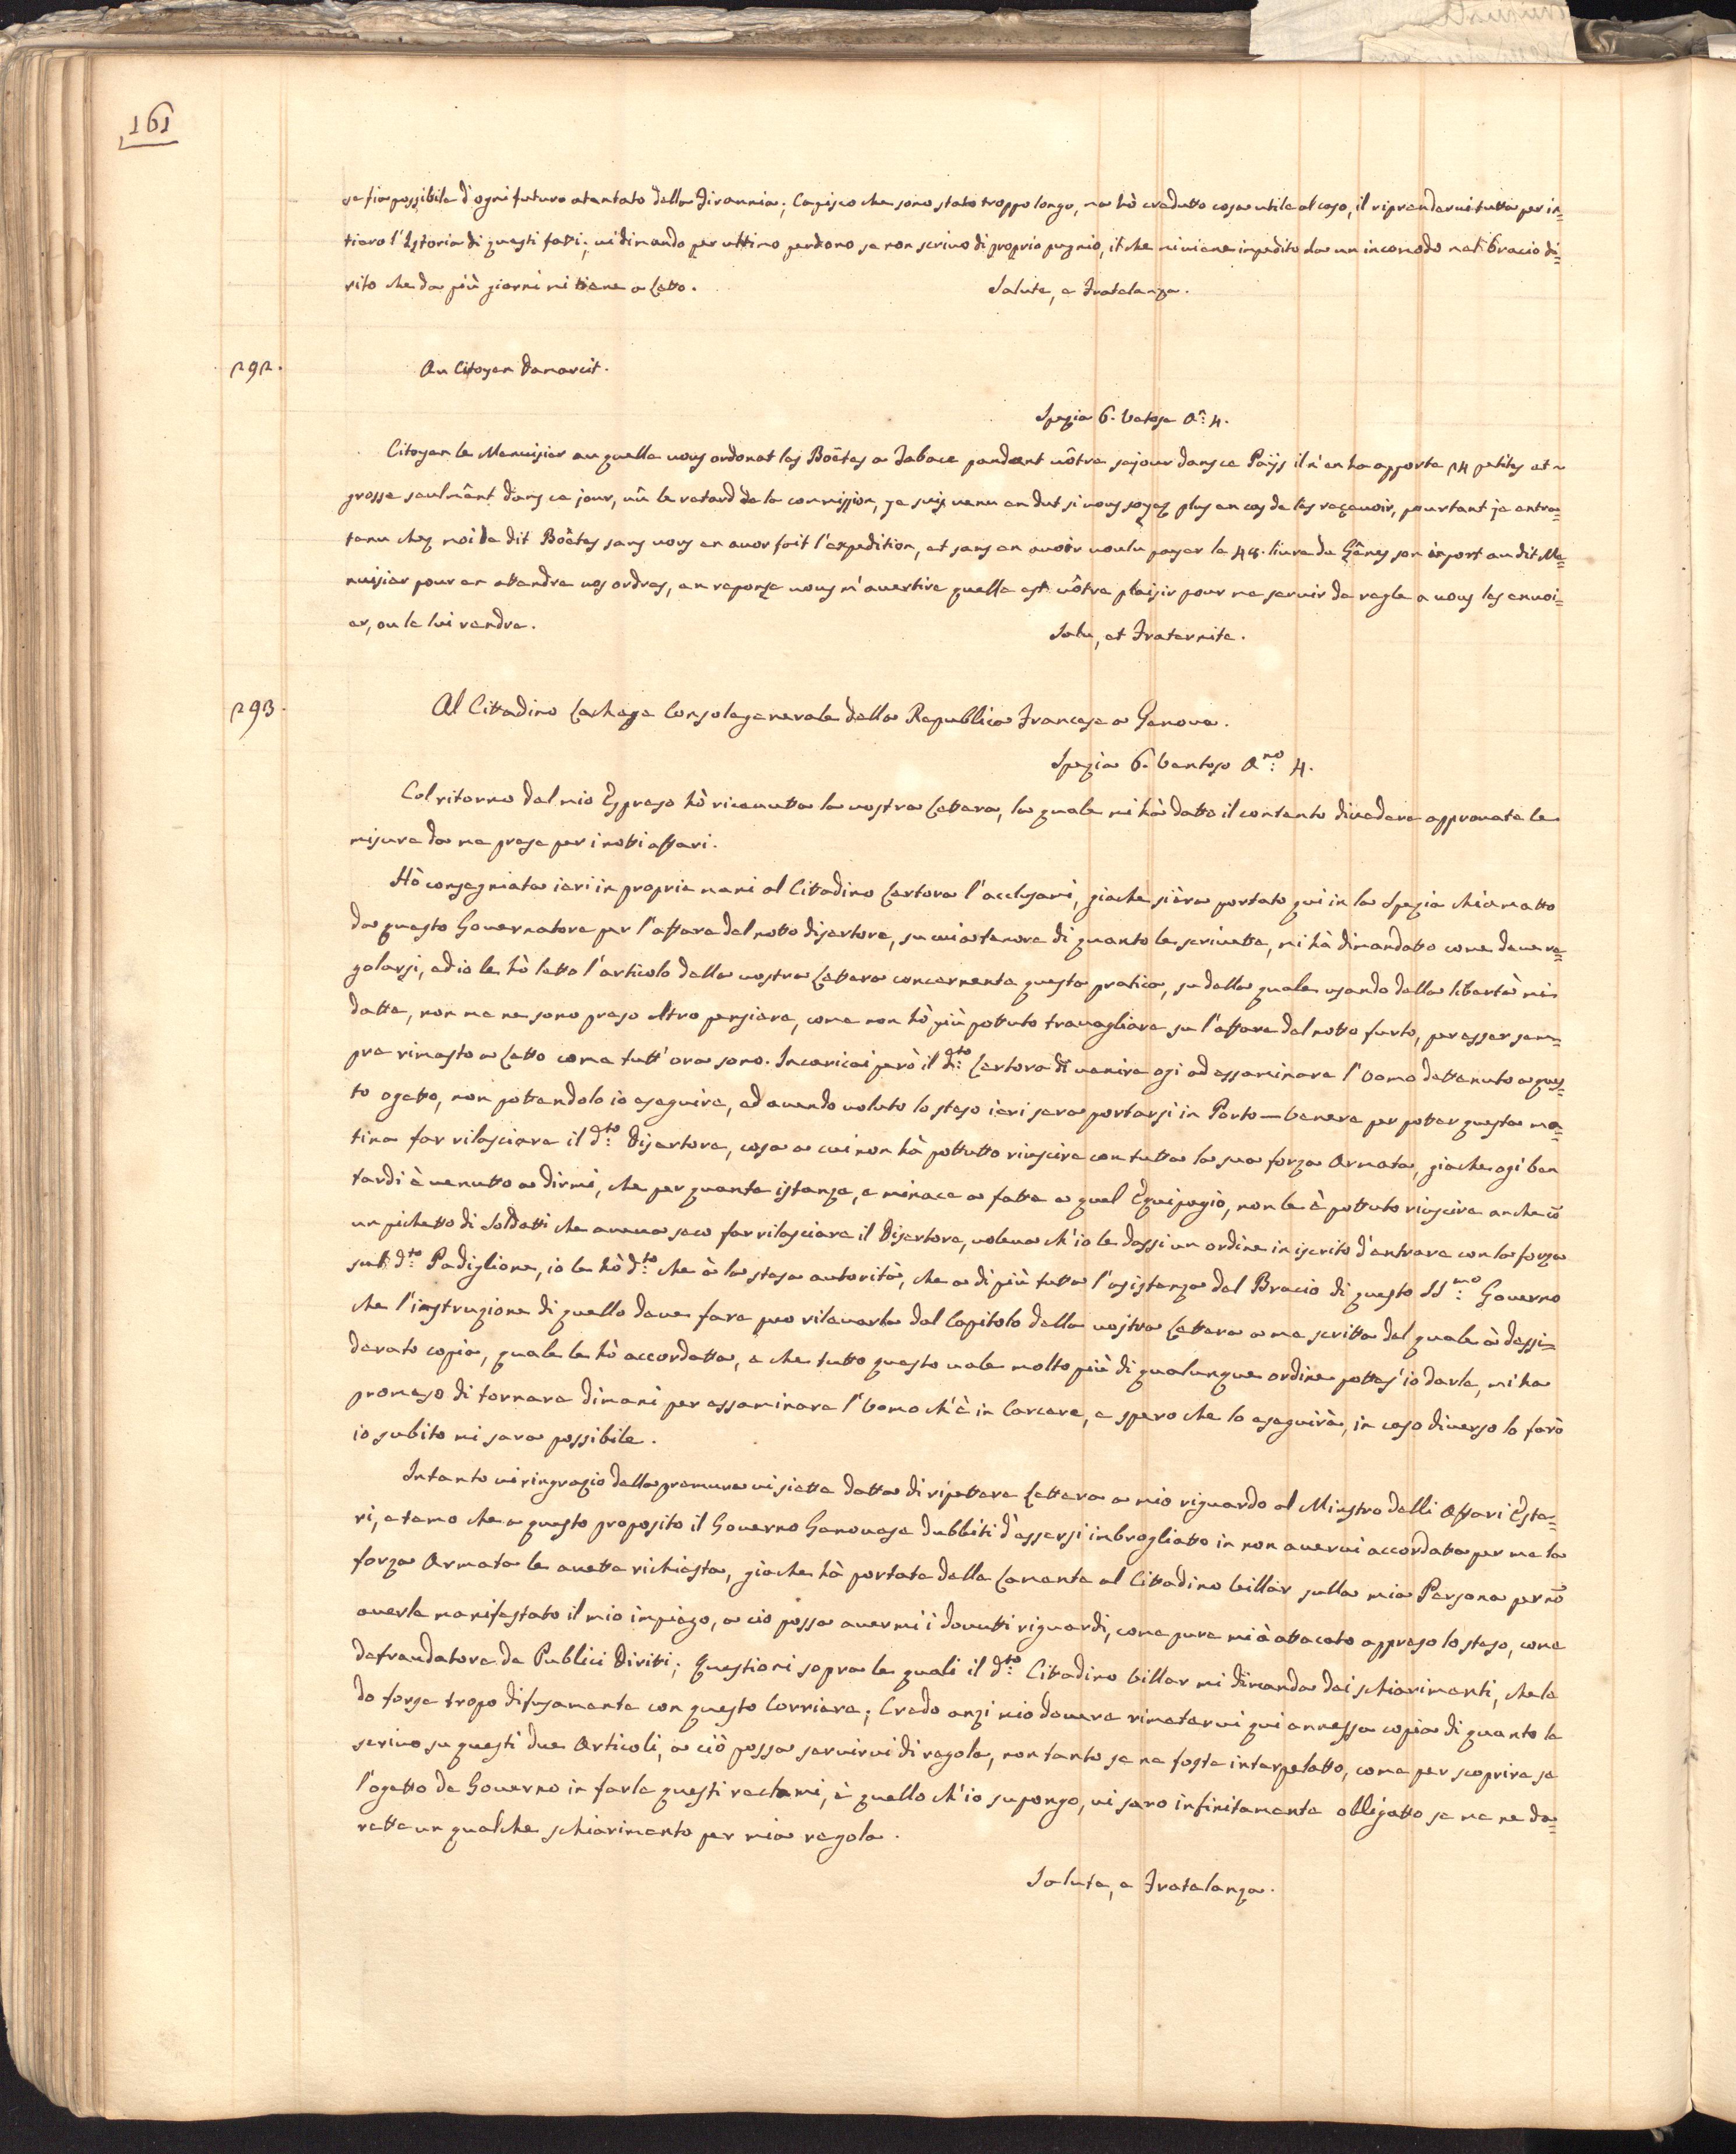 161
se fia possibile d'ogni futuro atentato della Tirannia; Capisco che sono stato troppo longo, ma hò credutto cosa utile al caso, il riprendervi tutta per in=
tiero l'Istoria di questi fatti; vi dimando per ultimo perdono se non scrivo di proprio pugnio, il che mi viene impedito da un incomodo nel Bracio di=
rito che da più giorni mi tiene a Letto.
Salute, e Fratelanza.
292.
Au Citoyen Danarcit.
Spezia 6. Vatose A.n 4.
Citoyen le Menuisier au quelle vous ordonat les Boëtes a Tabace pandent vôtre sejour dans ce Païjs il m'en ha apporte 24 petites et 2
grosse seulmânt dans ce jour, vû le retard de la commission, ye suis venu en dut si vous soyez plus en cas de les reçevoir, pourtant je entre=
tenu chez moi le dit Boêtes sans vous en avor fait l'expedition, et sans en avoir voulu payer le 48. livre de Gênes son import au dit Me=
nuisier pour en attendre vos ordres, en reponse vous m'avertire quelle est vôtre plaisir pour me servir de regle a vous les envoi=
er, ou le lui rendre.
Salu, et Fraternite.
293.
Al Cittadino Lachege Console generale della Republica Francese a Genova.
Spezia 6. Ventoso A.no 4.
Col ritorno del mio Espreso hò ricevutta la vostra Lettera, la quale mi hà datto il contento di vedere approvate le
misure da me prese per i notti affari.
Hò consegniata ieri in proprie mani al Cittadino Certora l'acclusami, giachè si èra portato qui in la Spezia chiamatto
da questo Governatore per l'affare del notto disertore, su cui a tenore di quanto le scrivette, mi hà dimandatto come deve re=
golarsi, ed io le hò letto l'articolo della vostra Lettera concernente questa pratica, su della quale usando della libertà mi
datte, non me ne sono preso altro pensiere, come non hò più pottuto travagliare su l'affare del notto furto, per esser sem=
pre rimasto a Letto come tutt'ora sono. Incaricai però il d.to Certora di venire ogi ad essaminare l'Uomo dettenuto a ques=
to ogetto, non pottendolo io eseguire, ed avendo voluto lo steso ieri sera portarsi in Porto-Venere per potter questa ma=
tina far rilasciare il d.to Disertore, cosa a cui non hà pottutto riuscire con tutta la sua forza Armata, giache ogi ben
tardi è venutto a dirmi, che per quante istanze, e minace a fatte a quel Equipagio, non le è pottuto riuscire anche cō
un pichetto di Soldatti che aveva seco far rilasciare il Disertore, voleva ch'io le dassi un ordine in iscrito d'entrare con la forza
sul d.to Padiglione, io le hò d.to che à la stesa autorità, che a di più tutta l'asistanza del Bracio di questo SS.mo Governo
che l'instruzione di quello deve fare può rilevarla dal Capitolo della vostra Lettera a me scritta del quale à dessi=
derato copia, quale le hò accordatta, e che tutto questo vale molto più di qualunque ordine pottes'io darle, mi ha
promeso di tornare dimani per essaminare l'Uomo ch'è in Carcere, e spero che lo eseguirà, in caso diverso lo farò
io subito mi sara possibile.
Intanto vi ringrazio della premura vi siette datta di ripettere Lettera a mio riguardo al Ministro delli Affari Este=
ri, e temo che a questo proposito il Governo Genovese dubbiti d'essersi inbrogliatto in non avervi accordatta per me la
forza Armata le avette richiesta, giache hà portate delle Lamente al Cittadino Villar sulla mia Persona per nō
averle manifestato il mio impiego, a ciò possa avermi i dovutti riguardi, come pure mi à attacato appreso lo steso, come
defraudatore de Publici Diritti; Questioni sopra le quali il d.to Cittadino Villar mi dimanda dei schiarimenti, che le
do forse tropo difusamente con questo Corriere; Credo anzi mio dovere rimetervi qui annessa copia di quanto le
scrivo su questi due Articoli, a ciò possa servirvi di regola, non tanto se ne foste interpelatto, come per scoprire se
l'ogetto de Governo in farle questi reclami, è quello ch'io supongo, vi saro infinitamente obbligatto se me ne da=
rette un qualche schiarimento per mia regola.
Salute, e Fratelanza.